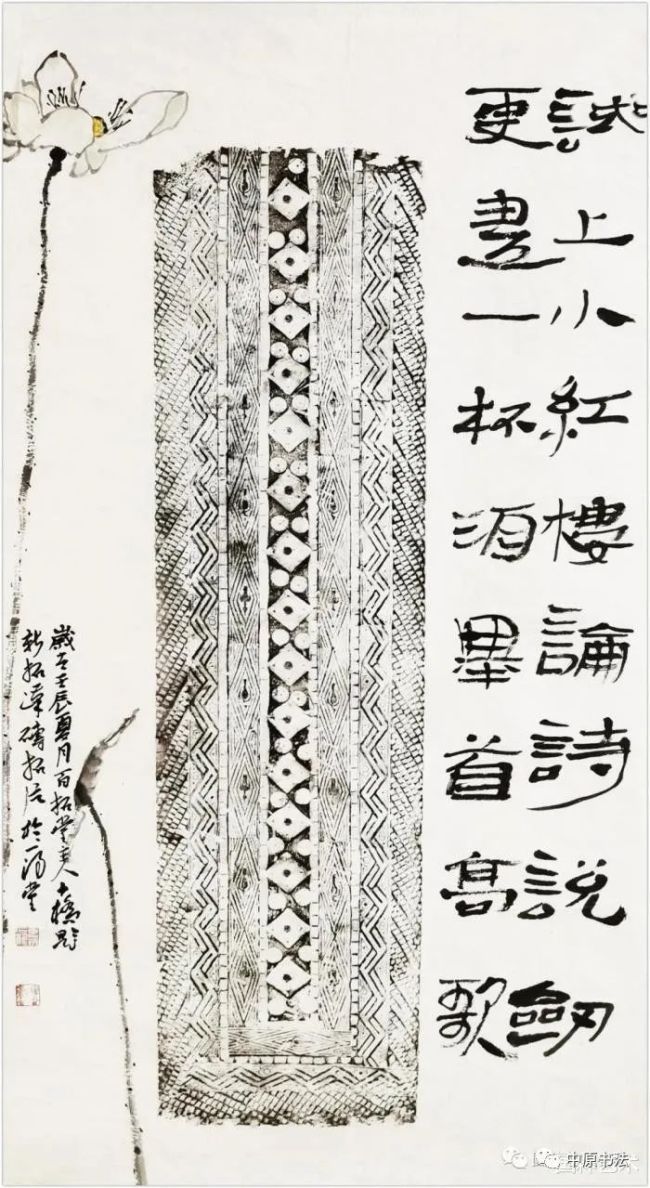 試上小紅樓論詩說劍
更盡一杯酒舉首高歌
歲在壬辰夏月百拓堂主人題
新拓漢磚拓片於堂
中原书法